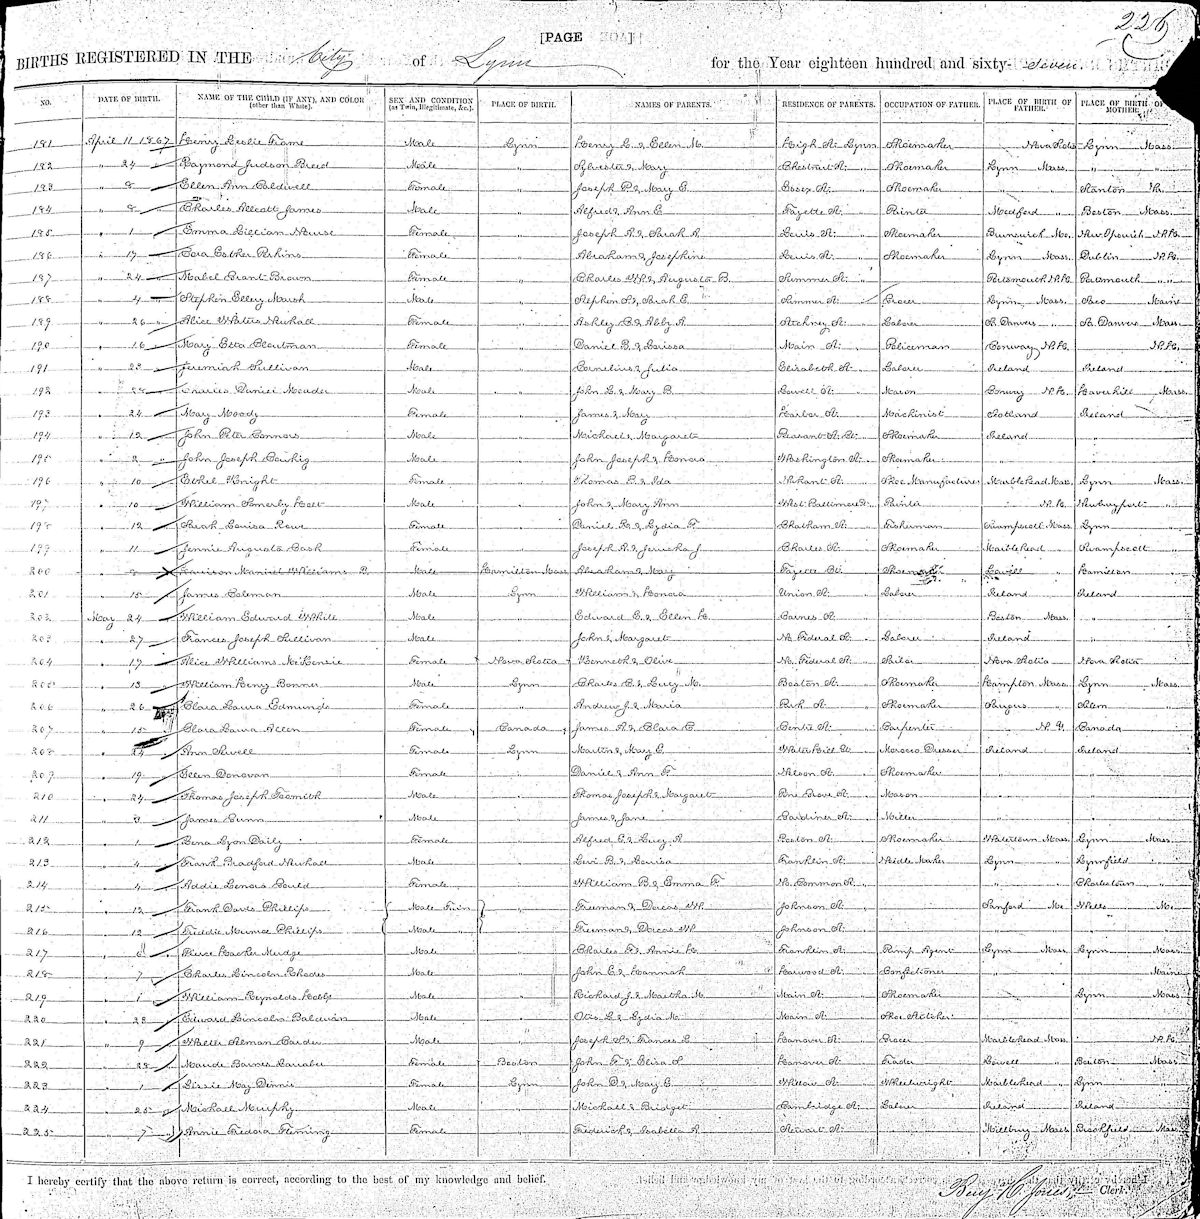 226
[PAGE ]
BIRTHS REGISTERED IN THE City of Lynn for the Year eighteen hundred and sixty-seven.
NO. DATE OF BIRTH. NAME OF THE CHILD (IF ANY), AND COLOR (other than White). SEX AND CONDITION (as Twin, Illegitimate, &c.). PLACE OF BIRTH. NAMES OF PARENTS. RESIDENCE OF PARENTS. OCCUPATION OF FATHER. PLACE OF BIRTH OF FATHER. PLACE OF BIRTH OF MOTHER.
181 April 11 1867 Henry Leslie Frame Male Lynn Henry L. & Ellen M. High St. Lynn Shoemaker Nova Scotia Lynn Mass.
182 " 24 " Raymond Judson Breed Male " Sylvester & Mary Chestnut St. " Shoemaker Lynn Mass. " "
183 " 8 " Ellen Ann Caldwell Female " Joseph P. & Mary E. Essex St. " Shoemaker " " Stanton
184 " 8 " Charles Allcott James Male " Alfred & Ann E Fayette St. " Printer Medford " Boston Mass.
185 " 1 " Emma Lillian Nourse Female " Joseph A. & Sarah A. Lewis St. " Shoemaker Brunswick Me. New Ipswich N.H.
186 " 17 " Cora Esther Perkins Female " Abraham & Josephine Lewis St. " Shoemaker Lynn Mass. Dublin N.H.
187 " 24 " Mabel Grant Brown Female " Charles W. & Augusta B. Summer St. " Portsmouth N.H. Portsmouth " "
188 " 4 Stephen Ellery Marsh Male " Stephen S. & Sarah E. Summer St. Grocer Lynn Mass. Saco Maine
189 " 26 " Alice Waters Newhall Female " Ashley C. & Abby A. Atchney St. " Laborer S. Danvers " S. Danvers Mass.
190 " 16 Mary Etta Cloutman Female " Daniel B. & Lavissa Main St. " Policeman Conway N.H. N.H.
191 " 23 Jeremiah Sullivan Male " Cornelius & Julia Elizabeth St. " Laborer Ireland Ireland
192 " 28 Charles Daniel Meader Male " John L. & Mary B. Lowell St. " Mason Conway N.H. Haverhill Mass.
193 " 24 Mary Moody Female " James & Mary Harbor St. " Machinist Scotland Ireland
194 " 12 John Peter Connors Male " Michael & Margaret Pleasant St. Ct. " Shoemaker Ireland "
195 " 2 " John Joseph Cowhig Male " John Joseph & Honora Washington St. " Shoemaker " "
196 " 10 Ethel Knight Female " Thomas P. & Ida Nahant St. " Shoe Manufacturer Marblehead Mass. Lynn Mass.
197 " 10 William Somerby Holt Male " John & Mary Ann West Baltimore St. Painter N.H. Newburyport "
198 " 12 Sarah Louisa Rowe Female " Daniel R. & Lydia F. Chatham St. " Fisherman Swampscott Mass. Lynn "
199 " 11 Jennie Augusta Cash Female " Joseph A. & Jerusha J. Charles St. " Shoemaker Marblehead " Swampscott "
200 " 8 Harrison Manuel Williams B. Male Hamilton Mass. Abraham & Mary Fayette St. " Shoemaker Hamilton "
201 " 15 James Coleman Male Lynn William & Honora Union St. " Laborer Ireland Ireland
202 May 24 William Edward White Male " Edward E. & Ellen H. Barnes St. " Boston Mass. "
203 " 27 Frances Joseph Sullivan Male " John & Margaret No. Federal St. " Laborer Ireland "
204 " 17 Alice Williams McKensie Female Nova Scotia Kenneth & Olive No. Federal St. " Nova Scotia Nova Scotia
205 " 13 William Henry Bonner Male Lynn Charles C. & Lucy M. Boston St. " Shoemaker Hampton Mass. Lynn Mass.
206 " 26 Clara Laura Edmunds Female " Andrew J. & Maria Park St. " Shoemaker Saugus " Salem "
207 " 15 Clara Laura Allen Female Canada James A. & Clara C. Centre St. " Carpenter N.Y. Canada
208 " 24 Ann Sewell Female Lynn Martin & Mary E. Water Hill St. Morocco Dresser Ireland Ireland
209 " 19 Ellen Donovan Female " Daniel & Ann F. Nelson St. " Shoemaker " "
210 " 24 Thomas Joseph Foomith Male " Thomas Joseph & Margaret Pine Grove St. " Mason " "
211 " 3 James Cunn Male " James & Jane Gardiner St. " Miller " "
212 " 1 Lena Lyon Daily Female " Alfred C. & Lucy A Boston St. " Shoemaker Watertown Mass. Lynn Mass.
213 " 4 Frank Bradford Newhall Male " Levi B. & Louisa Franklin St. " Needle Maker Lynn " Lynnfield "
214 " 4 Addie Lenora Gould Female " William B. & Emma F. No. Common St. " " " Charlestown "
215 " 12 Frank Davis Phillips Male Twin " Freeman & Dorcas W. Johnson St. Sanford Me. Wells Me.
216 " 12 Freddie Munroe Phillips Male " " Freeman & Dorcas W. Johnson St. " "
217 " 6 Pierce Hacker Mudge Male " Charles F. & Annie H. Franklin St. " Pump Agent Lynn Mass. Lynn Mass.
218 " 7 Charles Lincoln Rhodes Male " John C. & Hannah Harwood St. " Confectioner " " Maine
219 " 1 William Reynolds Hobbs Male " Richard J. & Martha M. Main St. " Shoemaker " " Lynn Mass.
220 " 28 Edward Lincoln Baldwin Male " Otis L. & Lydia M. Main St. " Shoe Stitcher " " " "
221 " 9 Walter Alman Carder Male " Joseph S. & Frances E. Hanover St. " Grocer Marblehead Mass. N.H.
222 " 28 Maude Barnes Larrabee Female Boston John F. & Eliza S. Hanover St. " Trader Lowell " Boston Mass.
223 " 1 Lizzie May Dennis Female Lynn John D. & Mary E. Willow St. " Wheelwright Marblehead " Lynn "
224 " 25 Michall Murphy Male " Michall & Bridget Cambridge St. " Laborer Ireland Ireland
225 " 7 Annie Fredora Fleming Female " Frederick & Isabella A. Stewart St. " Millbury Mass. Brookfield Mass.
I hereby certify that the above return is correct, according to the best of my knowledge and belief.
Benj. H. Jones, Clerk.